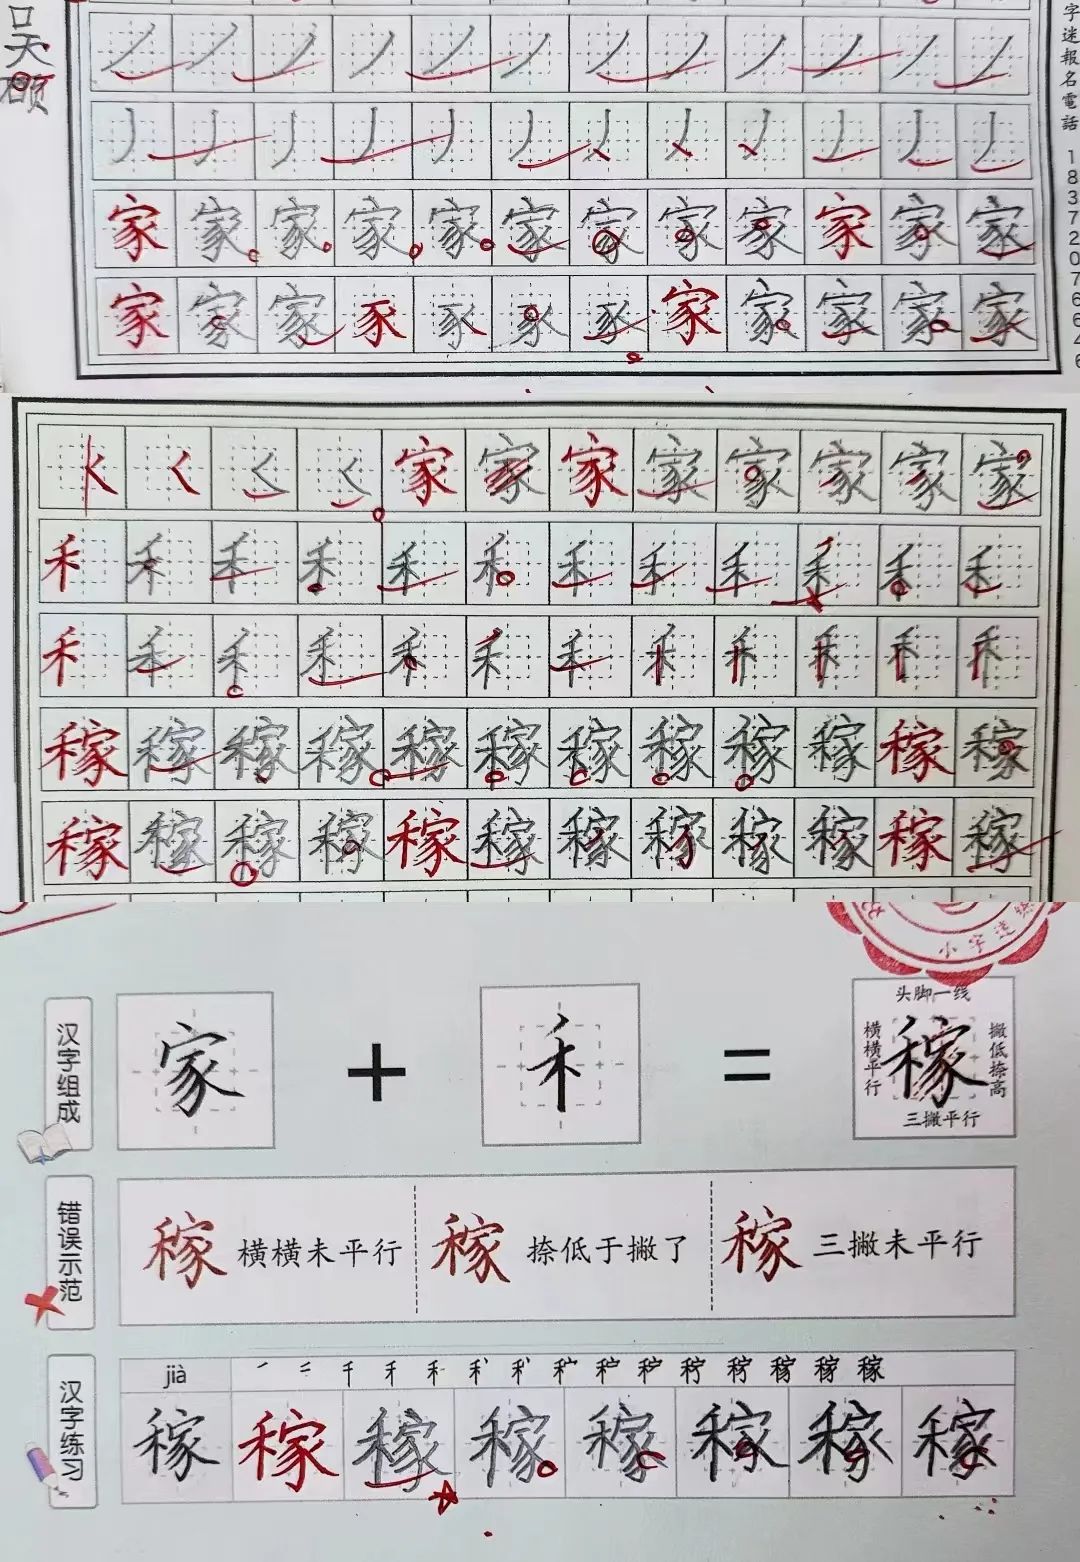 吴硕
字迷報名電話 18372076646
家 家 家 家 家 家 家 家 家 家 家 家
家 家 家 豕 豕 豕 豕 家 家 家 家 家
家 家 家 家 家 家 家 家
禾 禾 禾 禾 禾 禾 禾 禾 禾 禾 禾 禾
禾 禾 禾 禾 禾 禾 禾 禾 禾 禾 禾 禾
稼 稼 稼 稼 稼 稼 稼 稼 稼 稼 稼 稼
稼 稼 稼 稼 稼 稼 稼 稼 稼 稼 稼 稼
汉字组成
家 + 禾 = 稼
头脚一线
横横平行
撇低捺高
三撇平行
错误示范
稼 横横未平行
稼 捺低于撇了
稼 三撇未平行
汉字练习
jià
稼 稼 稼 稼 稼 稼 稼 稼